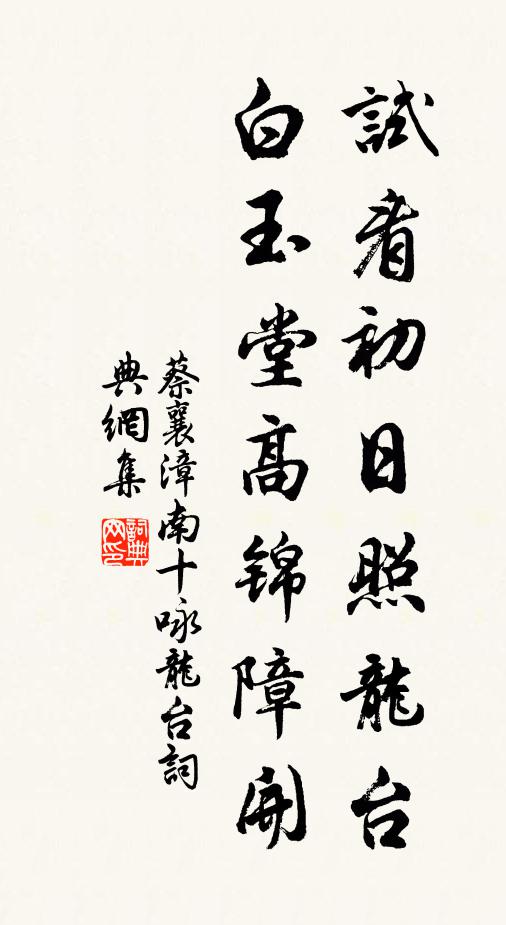 試看初日照龍台
白玉堂高錦障開
蔡襄漳南十咏龍台詞
典網集
詞典
网印